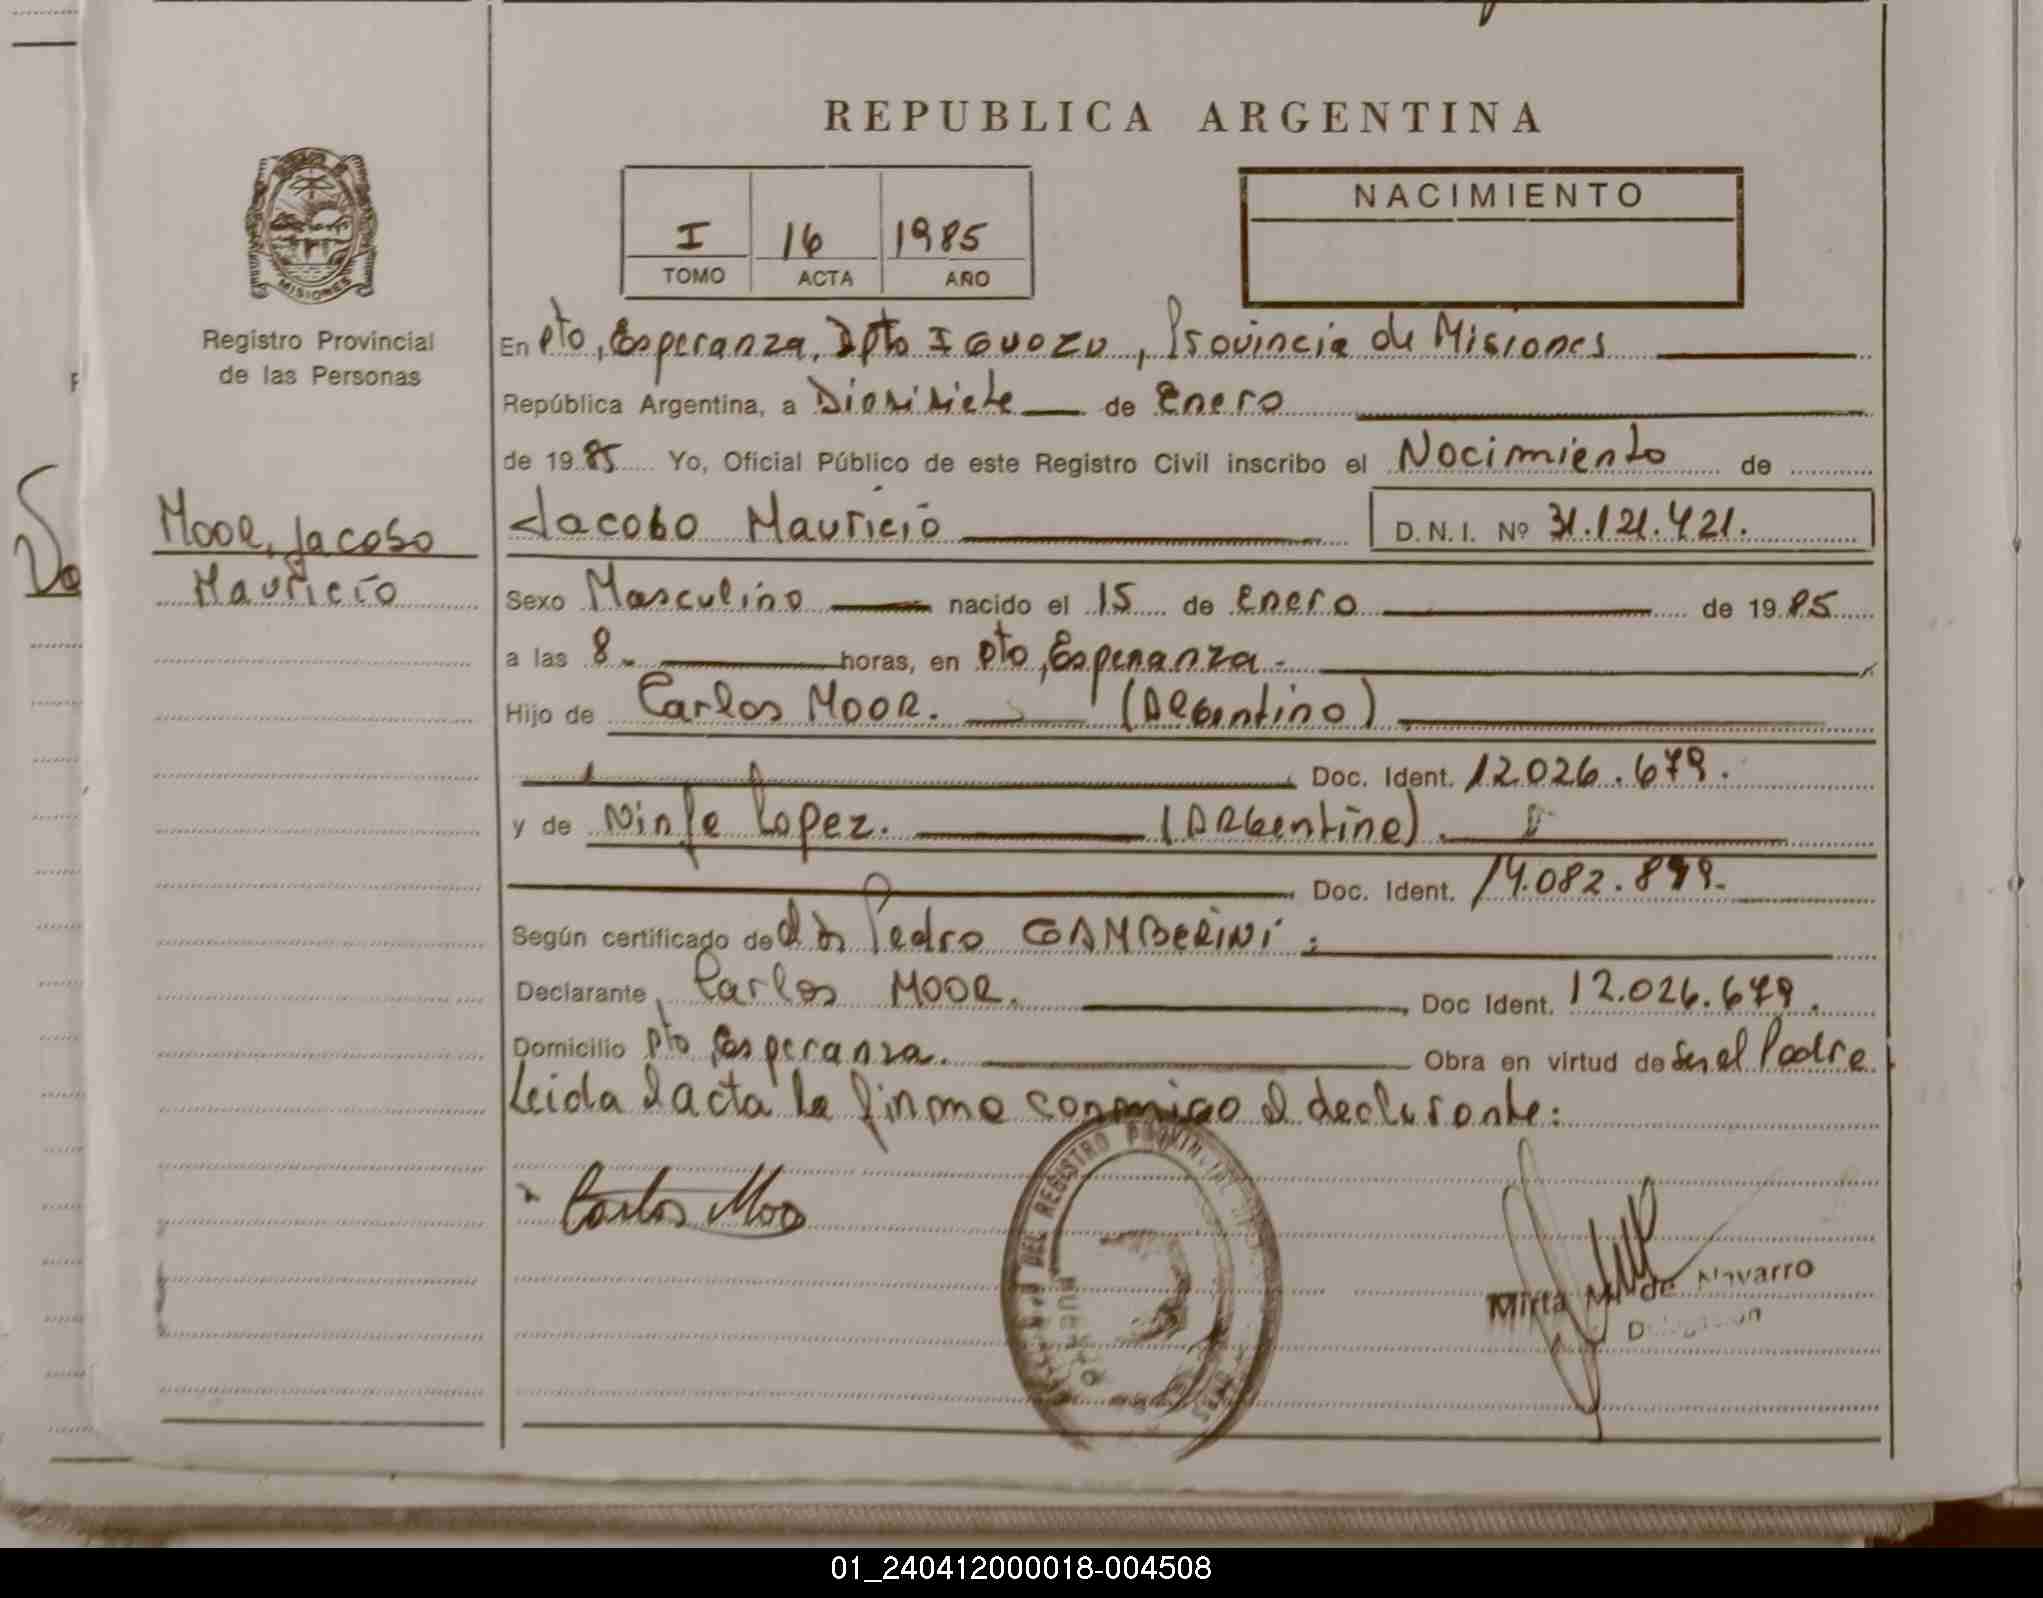 REPUBLICA ARGENTINA
NACIMIENTO
I 16 1985
TOMO ACTA AÑO
MISIONES
Registro Provincial
de las Personas
En Pto, Esperanza, Dpto IGUAZU, Provincia de Misiones
República Argentina, a Diesisiete de Enero
de 1985 Yo, Oficial Público de este Registro Civil inscribo el Nacimiento de
MOOR, Jacobo
Mauricio
Jacobo Mauricio D.N.I. Nº 31.121.421.
Sexo Masculino nacido el 15 de Enero de 1985
a las 8 horas, en Pto, Esperanza.
Hijo de Carlos MOOR. (Argentino)
Doc. Ident. 12.026.679.
y de Ninfa Lopez. (Argentina).
Doc. Ident. 14.082.899.
Según certificado de Pedro GAMBERINI
Declarante, Carlos MOOR. Doc Ident. 12.026.679.
Domicilio Pto, Esperanza. Obra en virtud de Ser el Padre
Leida el acta la firma conmigo el declarante:
DEL REGISTRO PROVINCIAL
Carlos Moor
Mirta de Navarro
01_240412000018-004508